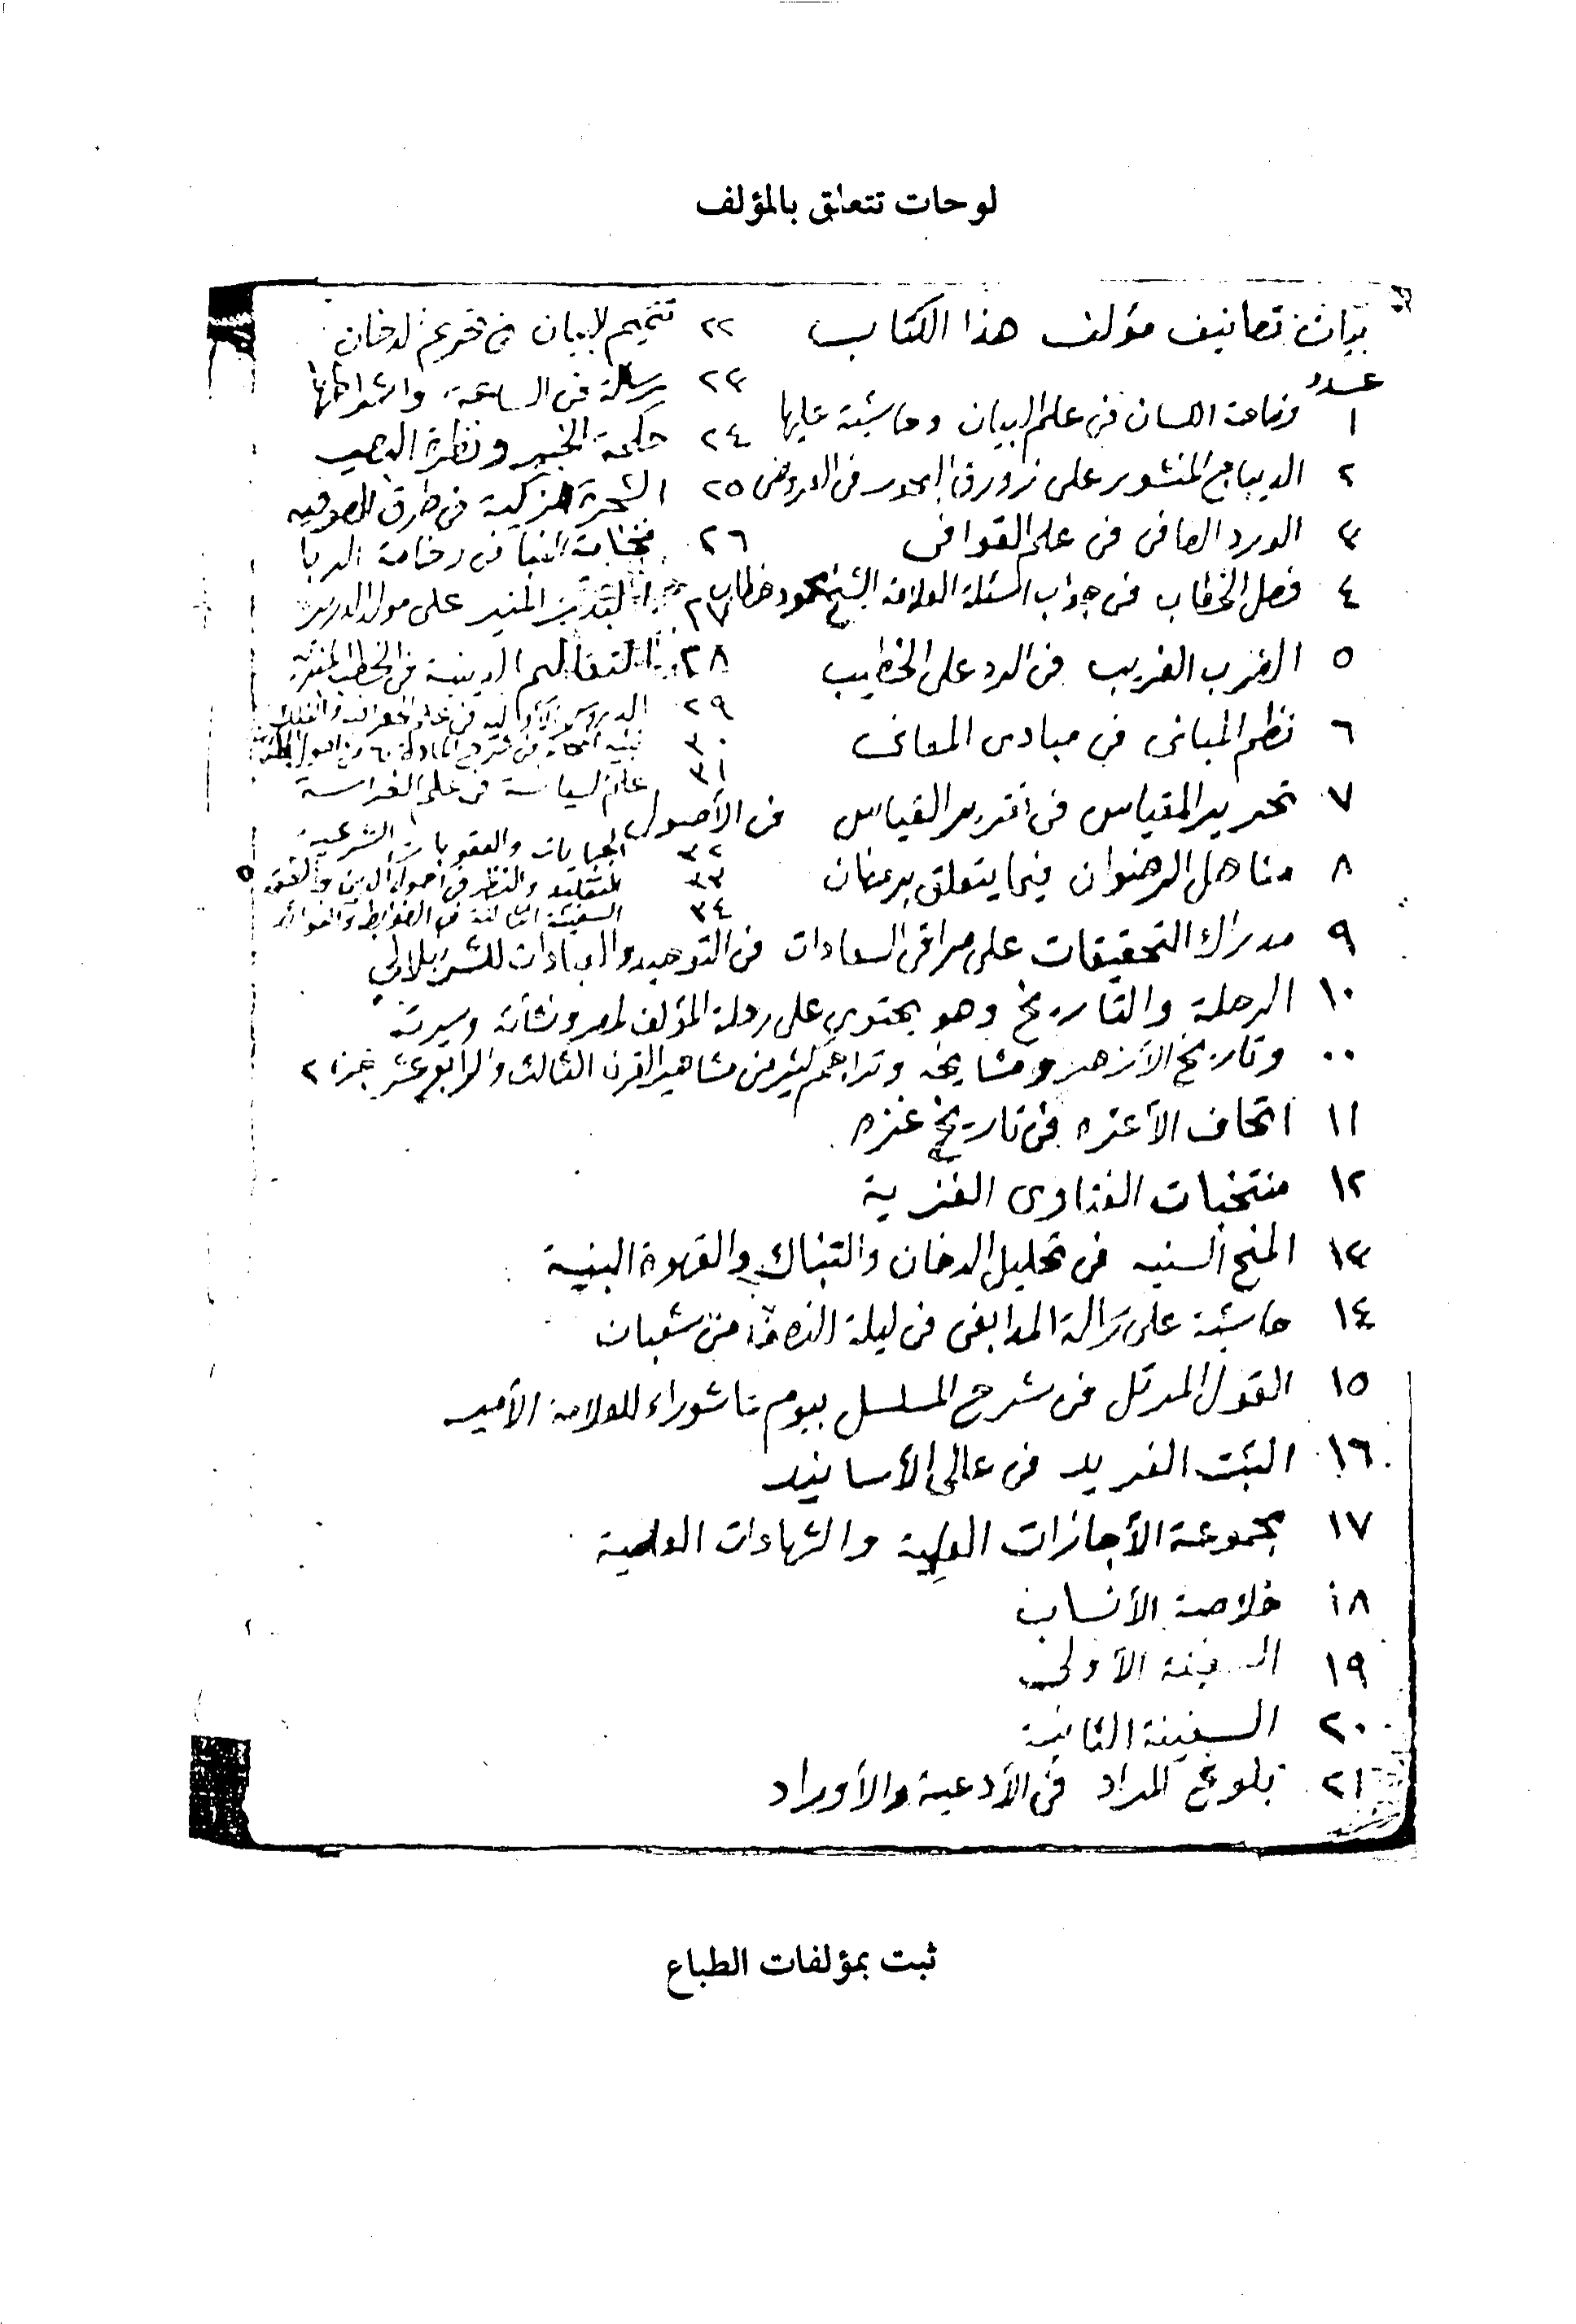 لوحات تتعلق بالمؤلف
بيان تصانيف مؤلف هذا الكتاب
عدد
١ فصاحة اللسان في علم البيان وحاشية عليها
٢ الديباج المنثور على زورق البحور في العروض
٣ الورد الصافي في علم القوافي
٤ فصل الخطاب في جواب اسئلة العلامة الشيخ محمود خطاب
٥ الضرب الغريب في الرد على الخطيب
٦ نظم المباني في مبادى المعاني
٧ تحرير المقياس في تقرير القياس في الأصول
٨ مناهل الرضوان فيما يتعلق برمضان
٩ مدارك التحقيقات على مراقى السعادات في التوحيد والعبادات للشرنبلالي
١٠ الرحلة والتاريخ وهو يحتوي على رحلة المؤلف لمصر ونشأته وسيرته
٠٠ وتاريخ الأزهر ومشايخه وتراجم كثير من مشاهير القرن الثالث والرابع عشر جزء ٢
١١ اتحاف الأعزه في تاريخ غزه
١٢ منتخبات الفتاوى الغزية
١٣ المنح السنيه في تحليل الدخان والتنباك والقهوة البنية
١٤ حاشية على رسالة المدابغى في ليلة النصف من شعبان
١٥ القول المرتل في شرح المسلسل بيوم عاشوراء للعلامة الأمير
١٦ الثبت الفريد في عالى الأسانيد
١٧ مجموعة الأجازات العلية والشهادات العلمية
١٨ خلاصة الأنساب
١٩ السفينة الأولى
٢٠ السفينة الثانية
٢١ بلوغ المراد في الأدعية والأوراد
٢٢ تتميم البيان في تحريم الدخان
٢٣ رسالة في الساعة واشراطها
٢٤ حكمة الخبير ونظرة البصير
٢٥ الشجرة الزكية في طرق الصوفيه
٢٦ في وخامة الربا
٢٧ المنير على مولد الدردير
٢٨ التعاليم الدينية في الخطب المنبرية
٢٩ الدروس الأوليه في علم الجغرافيه والفلك
٣٠ في شرح المادة ٦٠ من اصول
٣١ علم السياسة في علم الفراسة
٣٢ الجنايات والعقوبات الشرعية
٣٣ التقليد والنظر في أصول الدين والفقه
٣٤ السفينة الثالثة في الضوابط والفوائد
ثبت بمؤلفات الطباع